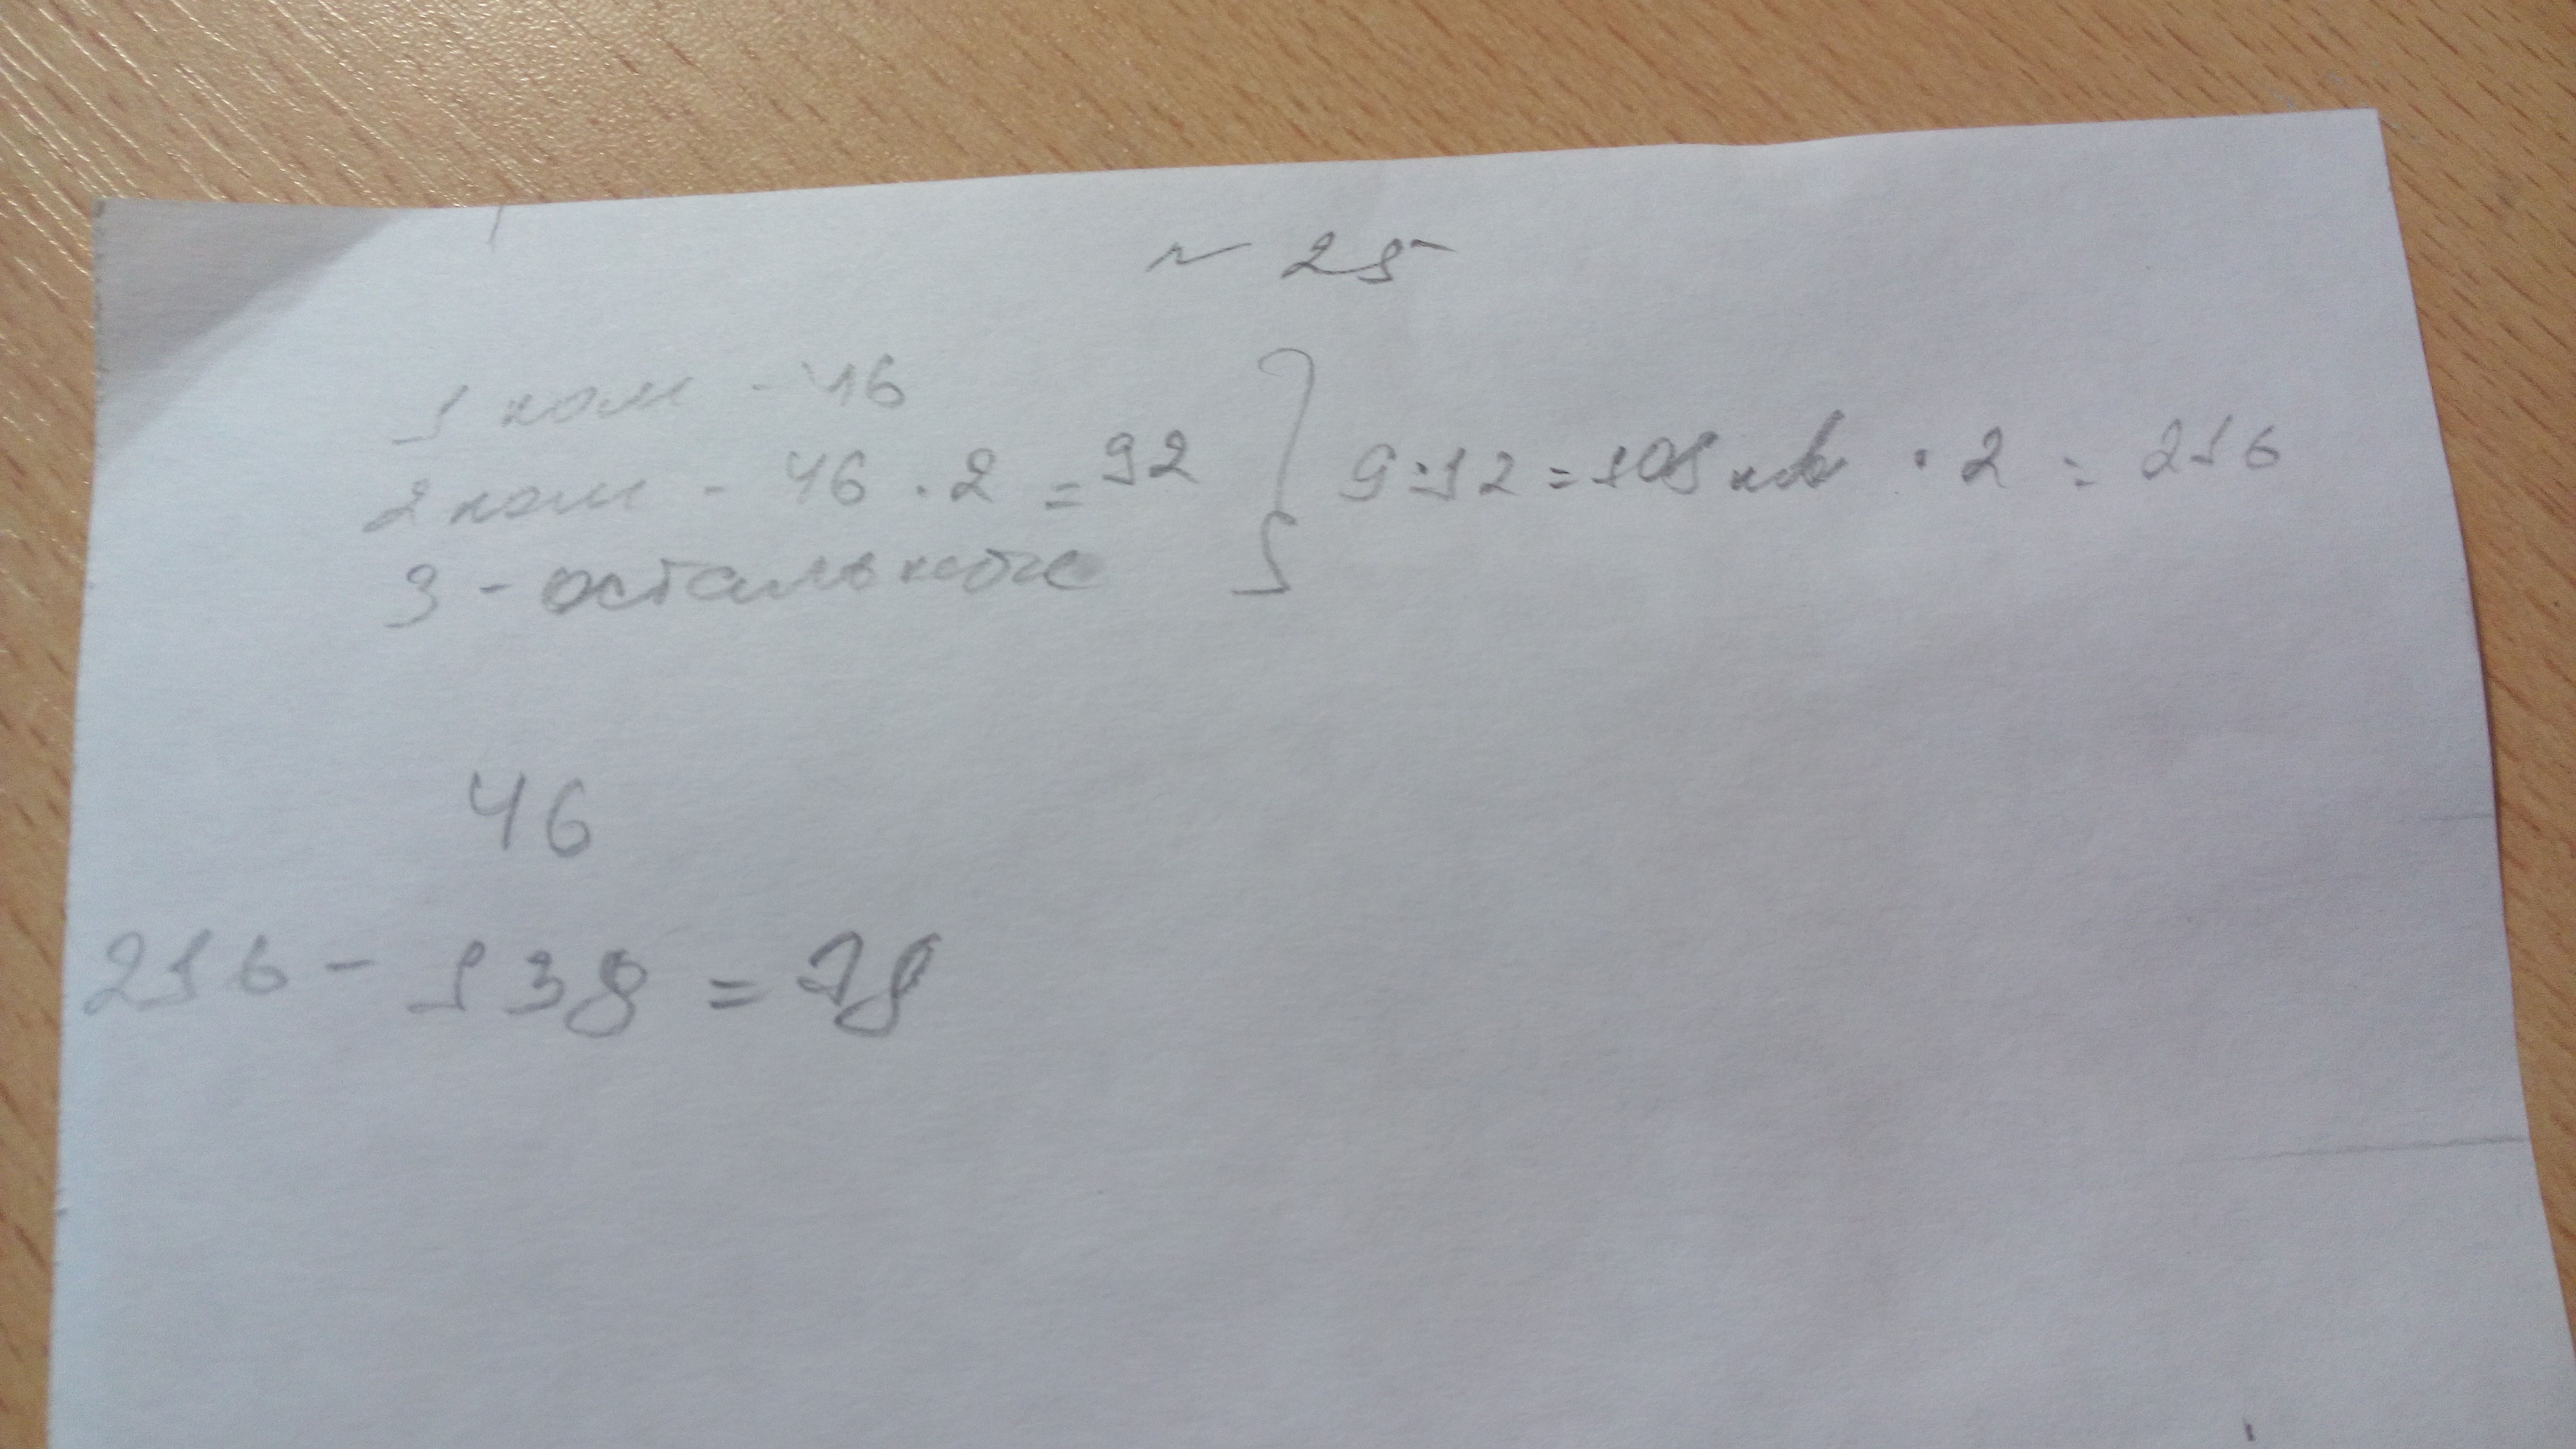 ~ 25
1 ком - 46
2 ком - 46 · 2 = 92 } 9·12 = 108 кв · 2 = 216
3 - остальное
46
216 - 138 = 78